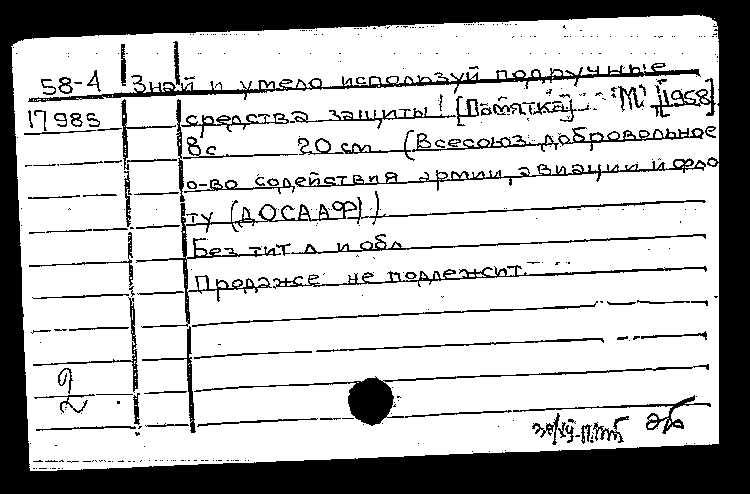 58-4 Знай и умело используй подручные
17985 средства защиты! [Памятка] "М", [1958]
8 с. 20 см (Всесоюз. добровольное
о-во содействия армии, авиации и фло
ту (ДОСААФ).)
Без тит л и обл
Продаже не подлежит.
2